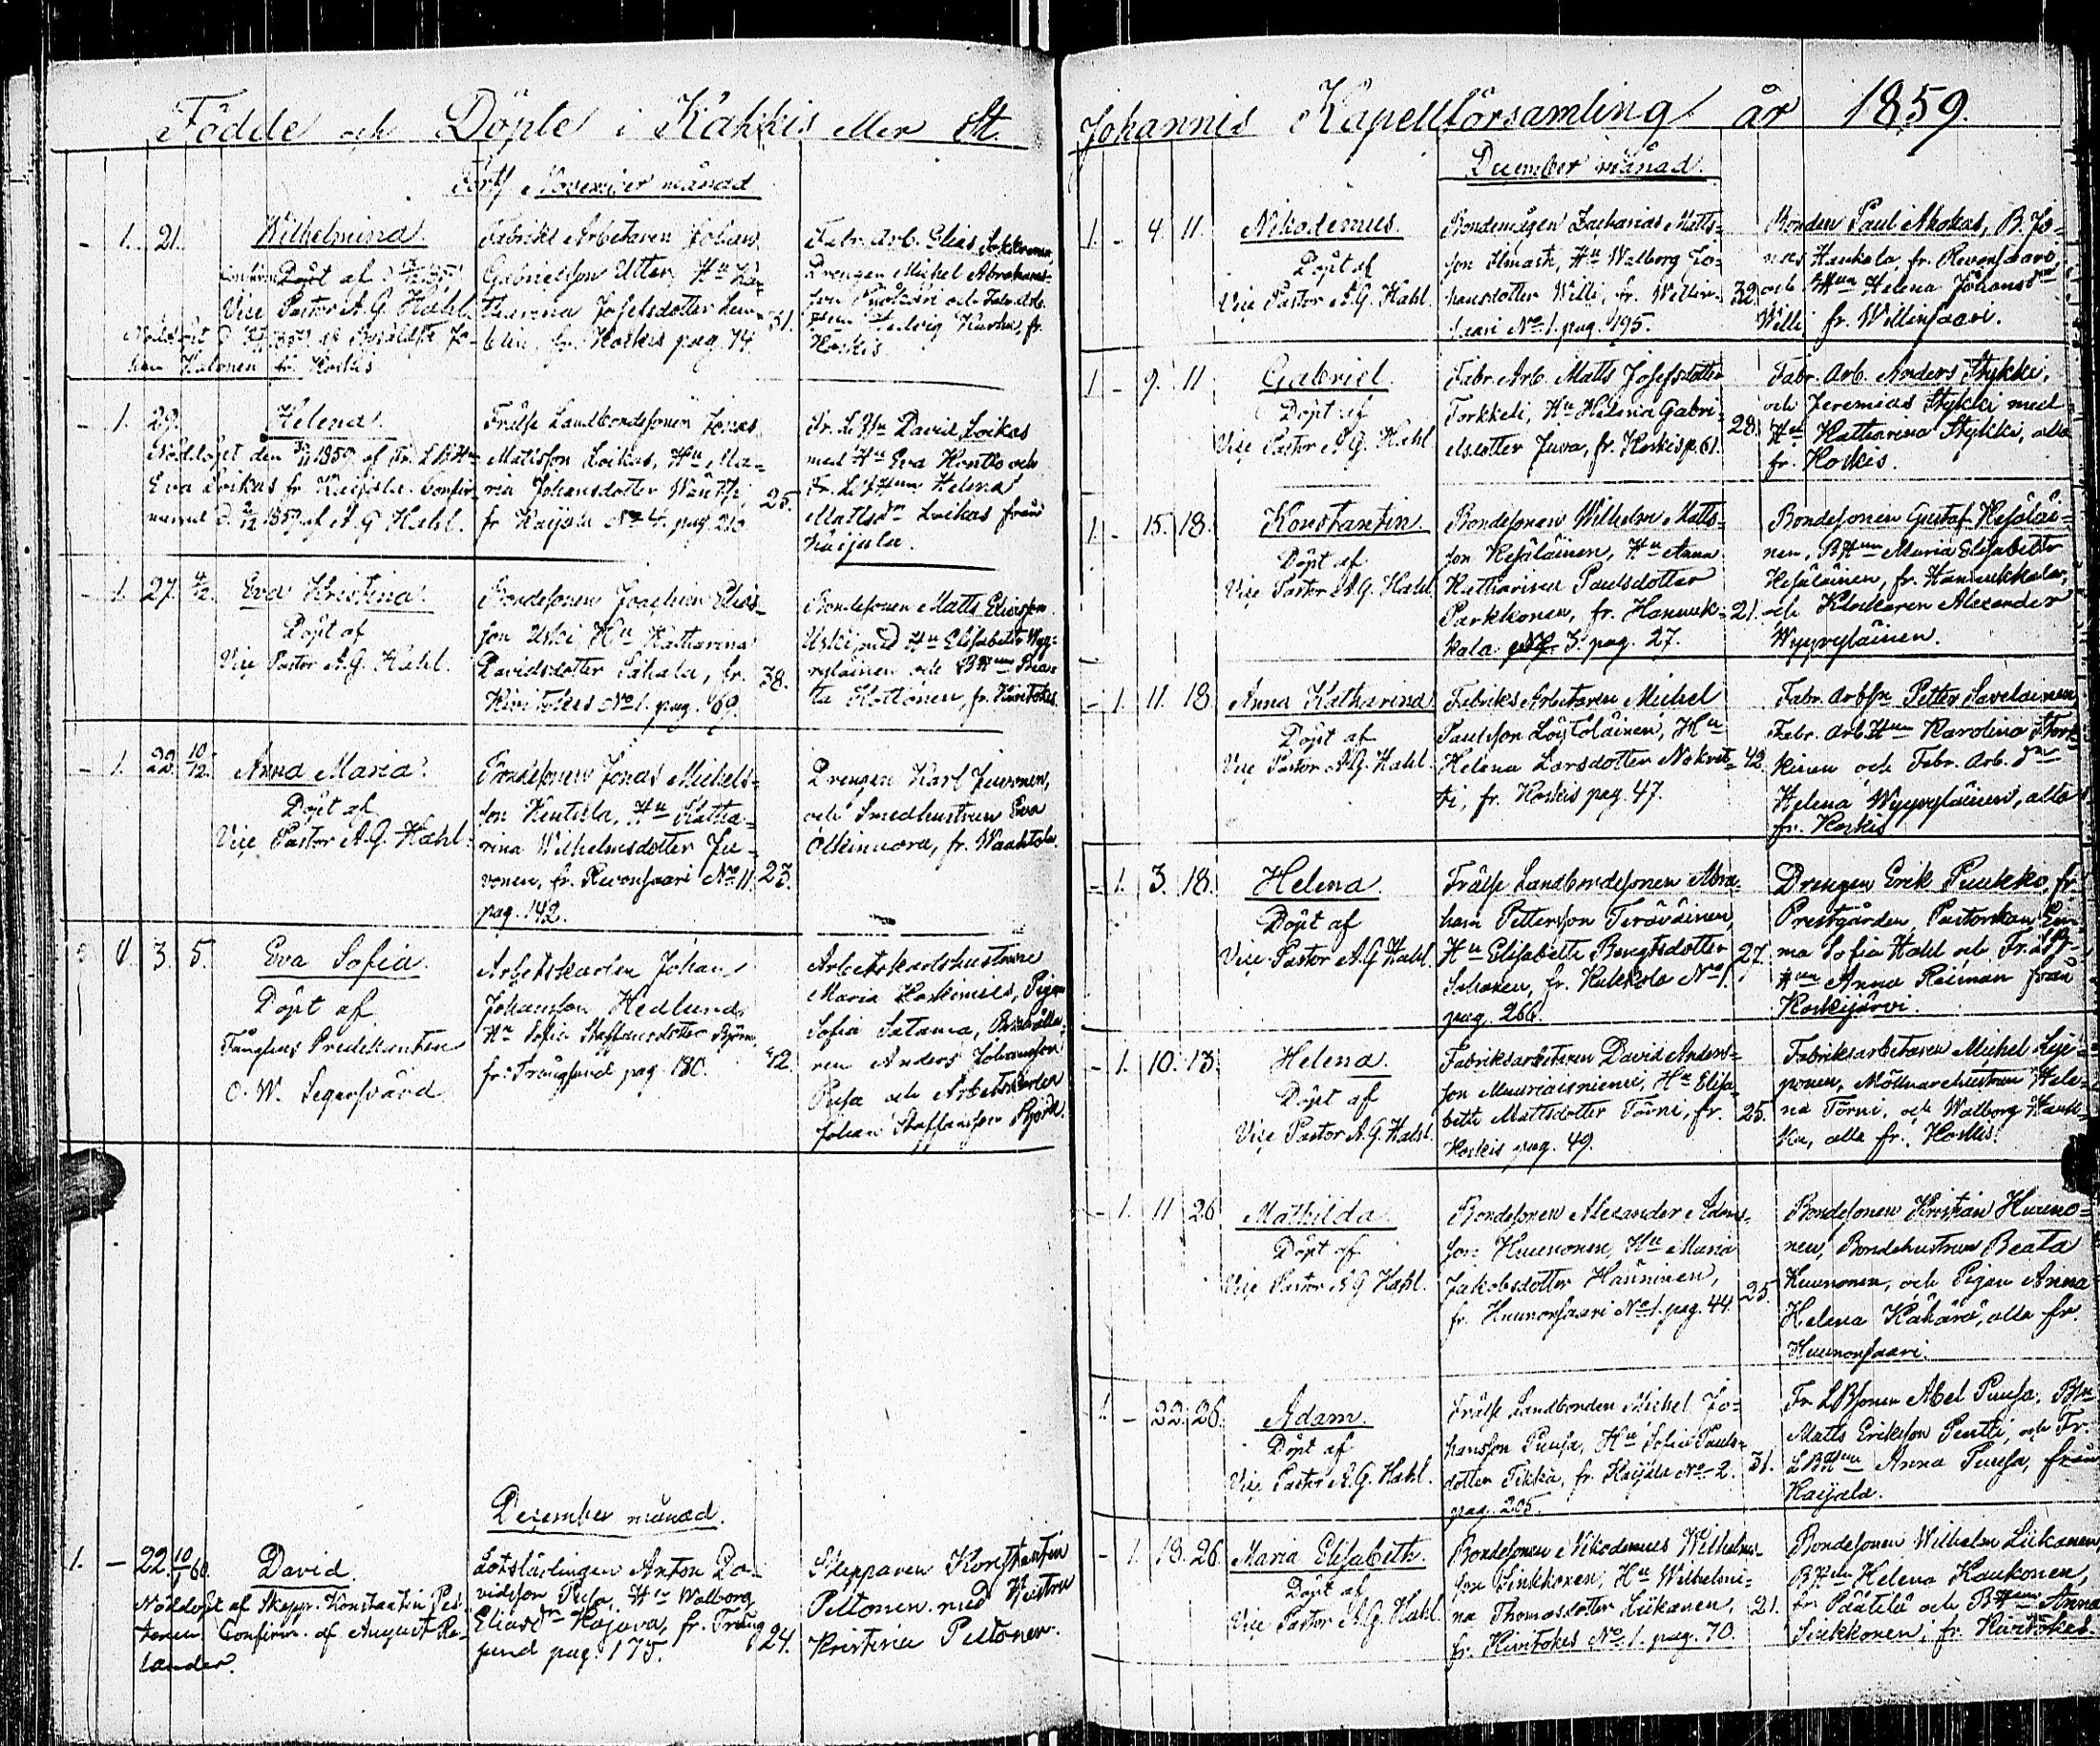 Födde och Döpte i Kakkis eller St.
Forts. November månad
- 1. 21. Wilhelmina.
Döpt af
Vice Pastor A. G. Hahl.
Fabriks Arbetaren Johan
Gabrielsson Utter, Hu Ka-
tharina Josefsdotter
fr. Koskis pag. 74. 31.
Fabr. Arb. Elias
Drengen Michel Abrahams-
fr.
Koskis
- 1. 29. Helena.
Nöddöpt den 30/11 1859 af Fr. L. B. Hu
Eva Loikas fr. Kaijala. Confir-
merad d. 1859 af A. G. Hahl.
Frälse Landbondesonen Jonas
Mattsson Loikas, Hu Ma-
ria Johansdotter
fr. Kaijala No 4. pag. 210. 25.
Fr. L. Bn David Loikas
med Hu Eva Kontto och
Fr. L. B. Hun Helena
Mattsdr Loikas från
Kaijala.
- 1. 27. 4/12. Eva Kristina.
Döpt af
Vice Pastor A. G. Hahl.
Bondesonen Joachim Elias-
son Uski, Hu Katharina
Davidsdotter Sahala, fr.
Kivitokes No 1. pag. 69. 38.
Bondesonen Matts Eliasson
Uski, med Hu Elisabeth Wyy-
ryläinen och B Hun Bea-
ta Kottonen, fr. Kivitokes.
- 1. 22. 10/12. Anna Maria.
Döpt af
Vice Pastor A. G. Hahl.
Bondesonen Jonas Michels-
son Kentala, Hu Katha-
rina Wilhelmsdotter Ju-
vonen, fr. Revonsaari No 11. 23.
pag. 142.
Drengen Karl Juvonen,
och Smedhustrun Eva
Olkinuora, fr. Waahtola.
3. 5. Eva Sofia.
Döpt af
Fånghus Predikanten
O. W. Segersvärd
Arbetskarlen Johan
Johansson Hedlund,
Hu Sofia Staffansdotter Björn,
fr. Trångsund pag. 180. 42.
Arbetskarlshustrun
Maria Koskimies, Pigan
Sofia Satama,
ren Anders Johansson
Pusa och Arbetskarlen
Johan Staffansson Björn.
December månad.
1. - 22. 10/1 60. David.
Nöddöpt af Skepp. Konstantin Pel-
tonen. Confirm. af August Re-
lander.
Lotslärlingen Anton Da-
vidsson Pusa, Hu Walborg
Eliasdr Hojava, fr. Trång-
sund pag. 175. 24.
Skepparen Konstantin
Peltonen med Hustru
Kristina Peltonen.
Johannis Kapellförsamling år 1859.
December månad.
1. - 4. 11. Nikodemus.
Döpt af
Vice Pastor A. G. Hahl.
Bondemågen Zacharias Matts-
son Ilmast, Hu Walborg Jo-
hansdotter Willi, fr. Willin-
saari No 1. pag. 195. 32.
Bonden Paul Mokas, B. Jo-
nas Haukala, fr. Revonsaari,
och Hun Helena Johansdr
Willi fr. Willinsaari.
1. - 9. 11. Gabriel.
Döpt af
Vice Pastor A. G. Hahl
Fabr. Arb. Matts Josefsdotter
Torkkeli, Hu Helena Gabri-
elsdotter Juva, fr. Koskis p. 61. 28.
Fabr. Arb. Anders Stykki,
och Jeremias Stykki med
Hu Katharina Stykki, alla
fr. Koskis.
1. - 15. 18. Konstantin.
Döpt af
Vice Pastor A. G. Hahl.
Bondesonen Wilhelm Matts-
son Kesäläinen, Hu Anna
Katharina Paulsdotter
Parkkonen, fr. Hannuk-
kala 3. pag. 27. 21.
Bondesonen Gustaf Kesäläi-
nen, B Hun Maria Elisabeth
Kesäläinen, fr. Hannukkala,
och Klockaren Alexander
Wyyryläinen.
- 1. 11. 18. Anna Katharina
Döpt af
Vice Pastor A. G. Hahl.
Fabriks Arbetaren Michel
Paulsson Löytöläinen, Hu
Helena Larsdotter Nokret-
ti, fr. Koskis pag. 47. 42.
Fabr. Arb. Petter Savolainen,
Fabr. Arb. Hun Karolina Stork-
kinen och Fabr. Arb. Dr
Helena Wyyryläinen, alla
fr. Koskis
- 1. 3. 18. Helena.
Döpt af
Vice Pastor A. G. Hahl.
Frälse Landbondesonen Abra-
ham Pettersson Teräväinen,
Hu Elisabeth Bengtsdotter
Sahanen, fr. Kukkola No 1.
pag. 266. 27.
Drengen Erik Puukko, fr.
Prestgården, Pastorskan Em-
ma Sofia Hahl och Fr. L. B.
Hun Anna Reiman från
Koskijärvi.
- 1. 10. 13. Helena.
Döpt af
Vice Pastor A. G. Hahl.
Fabriksarbetaren David Anders-
son Muuriaisniemi, Hu Elisa-
beth Mattsdotter Törni, fr.
Koskis pag. 49. 25.
Fabriksarbetaren Michel Lyy-
ponen, Möllarehustrun Hele-
na Törni, och Walborg Hauk-
ka, alla fr. Koskis.
- 1. 11. 26. Mathilda.
Döpt af
Vice Pastor A. G. Hahl.
Bondesonen Alexander Adams-
son Huunonen, Hu Maria
Jakobsdotter Hänninen,
fr. Huunonsaari No 1. pag. 44. 25.
Bondesonen Kristian Huuno-
nen, Bondehustrun Beata
Huunonen, och Pigan Anna
Helena Kähärä, alla fr.
Huunonsaari.
1. - 22. 26. Adam.
Döpt af
Vice Pastor A. G. Hahl.
Frälse Landbonden Michel Jo-
hansson Puusa, Hu Sofia Pauls-
dotter Tikka, fr. Kaijala No 2.
pag. 205. 31.
Fr. L B Sonen Abel Puusa, Bn
Matts Eriksson Pentti, och Fr.
L B Hun Anna Puusa, från
Kaijala.
- 1. 18. 26. Maria Elisabeth.
Döpt af
Vice Pastor A. G. Hahl.
Bondesonen Nikodemus Wilhelms-
son Sinkkonen, Hu Wilhelmi-
na Thomasdotter Liikanen,
fr. Kivitokes No 1. pag. 70. 21.
Bondesonen Wilhelm Liikanen,
Helena Kaukonen,
fr. Päätilä och B Hun Anna
Sinkkonen, fr. Kivitokes.